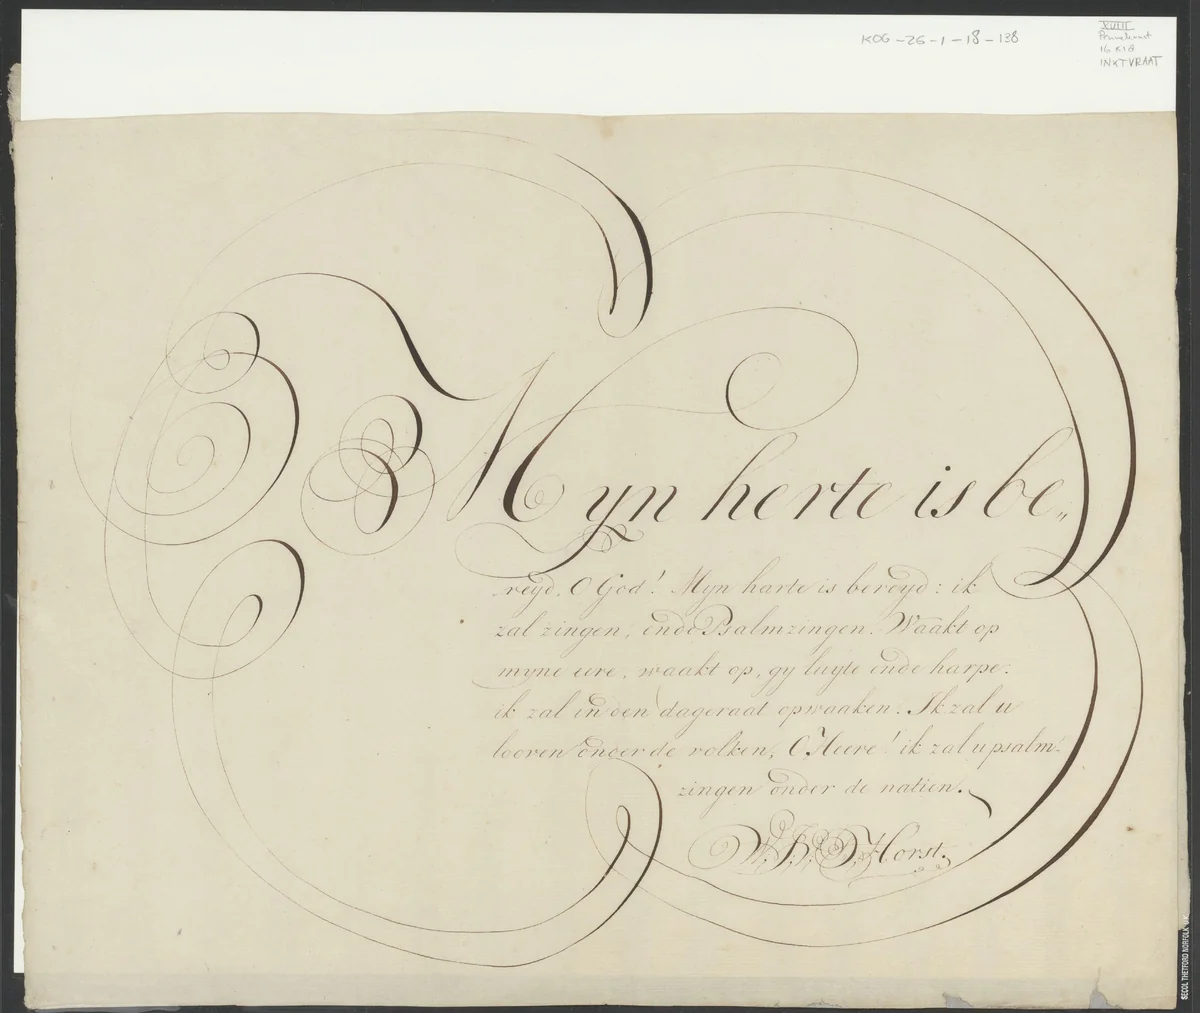 KOG-ZG-1-18-138
XVIII
16 x 18
INKTVRAAT
Myn herte is be„
reyd, O God! Myn harte is bereyd: ik
zal zingen, ende Psalmzingen. Waakt op
myne eere, waakt op, gy luyte ende harpe:
ik zal in den dageraat opwaaken. Ik zal u
looven onder de volken, O Heere! ik zal u psalm:
zingen onder de natien.
Horst.
SECOL THETFORD NORFOLK U.K.